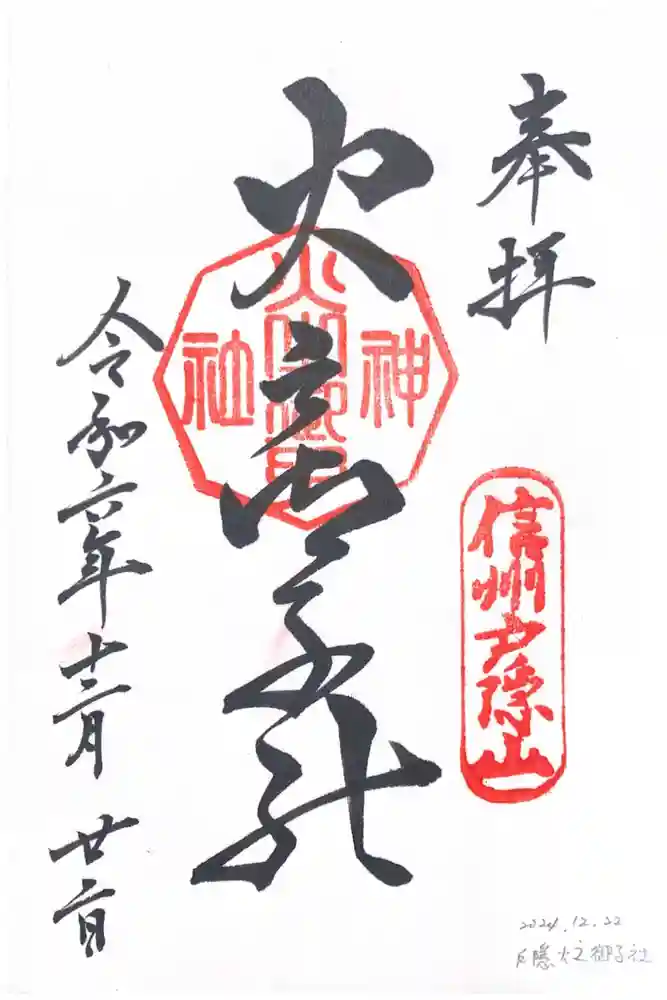 奉拝
信州戸隠山
火之御子社
火之御子
神
社
令和六年十二月廿二日
2024.12.22
戸隠火之御子社